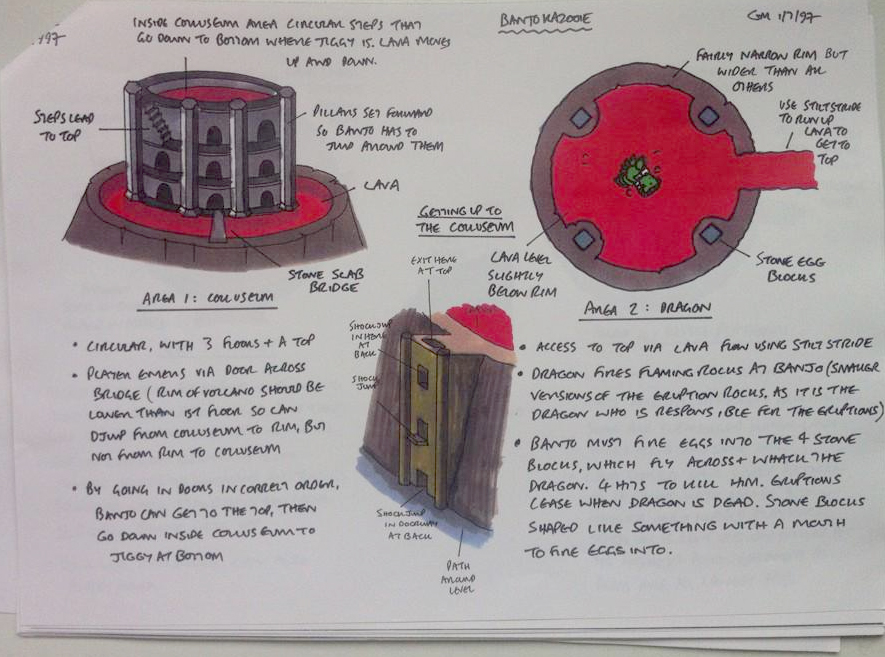 BANJO KAZOOIE
GM 1/7/97
1/97
INSIDE COLLUSEUM AREA CIRCULAR STEPS THAT
GO DOWN TO BOTTOM WHERE JIGGY IS. LAVA MOVES
UP AND DOWN.
STEPS LEAD
TO TOP
PILLARS SET FORWARD
SO BANJO HAS TO
JUMP AROUND THEM
LAVA
STONE SLAB
BRIDGE
AREA 1: COLLUSEUM
• CIRCULAR, WITH 3 FLOORS + A TOP
• PLAYER ENTERS VIA DOOR ACROSS
BRIDGE (RIM OF VOLCANO SHOULD BE
LOWER THAN 1ST FLOOR SO CAN
JUMP FROM COLLUSEUM TO RIM, BUT
NOT FROM RIM TO COLLUSEUM
• BY GOING IN DOORS IN CORRECT ORDER,
BANJO CAN GET TO THE TOP, THEN
GO DOWN INSIDE COLLUSEUM TO
JIGGY AT BOTTOM
GETTING UP TO
THE COLLUSEUM
EXIT HERE
AT TOP
SHOCKJUMP
IN HERE
AT
BACK
SHOCK
JUMP
SHOCKJUMP
IN DOORWAY
AT BACK
PATH
AROUND
LEVEL
FAIRLY NARROW RIM BUT
WIDER THAN ALL
OTHERS
USE STILTSTRIDE
TO RUN UP
LAVA TO
GET TO
TOP
LAVA LEVEL
SLIGHTLY
BELOW RIM
STONE EGG
BLOCKS
AREA 2: DRAGON
• ACCESS TO TOP VIA LAVA FLOW USING STILT STRIDE
• DRAGON FIRES FLAMING ROCKS AT BANJO (SMALLER
VERSIONS OF THE ERUPTION ROCKS, AS IT IS THE
DRAGON WHO IS RESPONSIBLE FOR THE ERUPTIONS)
• BANJO MUST FIRE EGGS INTO THE 4 STONE
BLOCKS, WHICH FLY ACROSS + WHACK THE
DRAGON. 4 HITS TO KILL HIM. ERUPTIONS
CEASE WHEN DRAGON IS DEAD. STONE BLOCKS
SHAPED LIKE SOMETHING WITH A MOUTH
TO FIRE EGGS INTO.